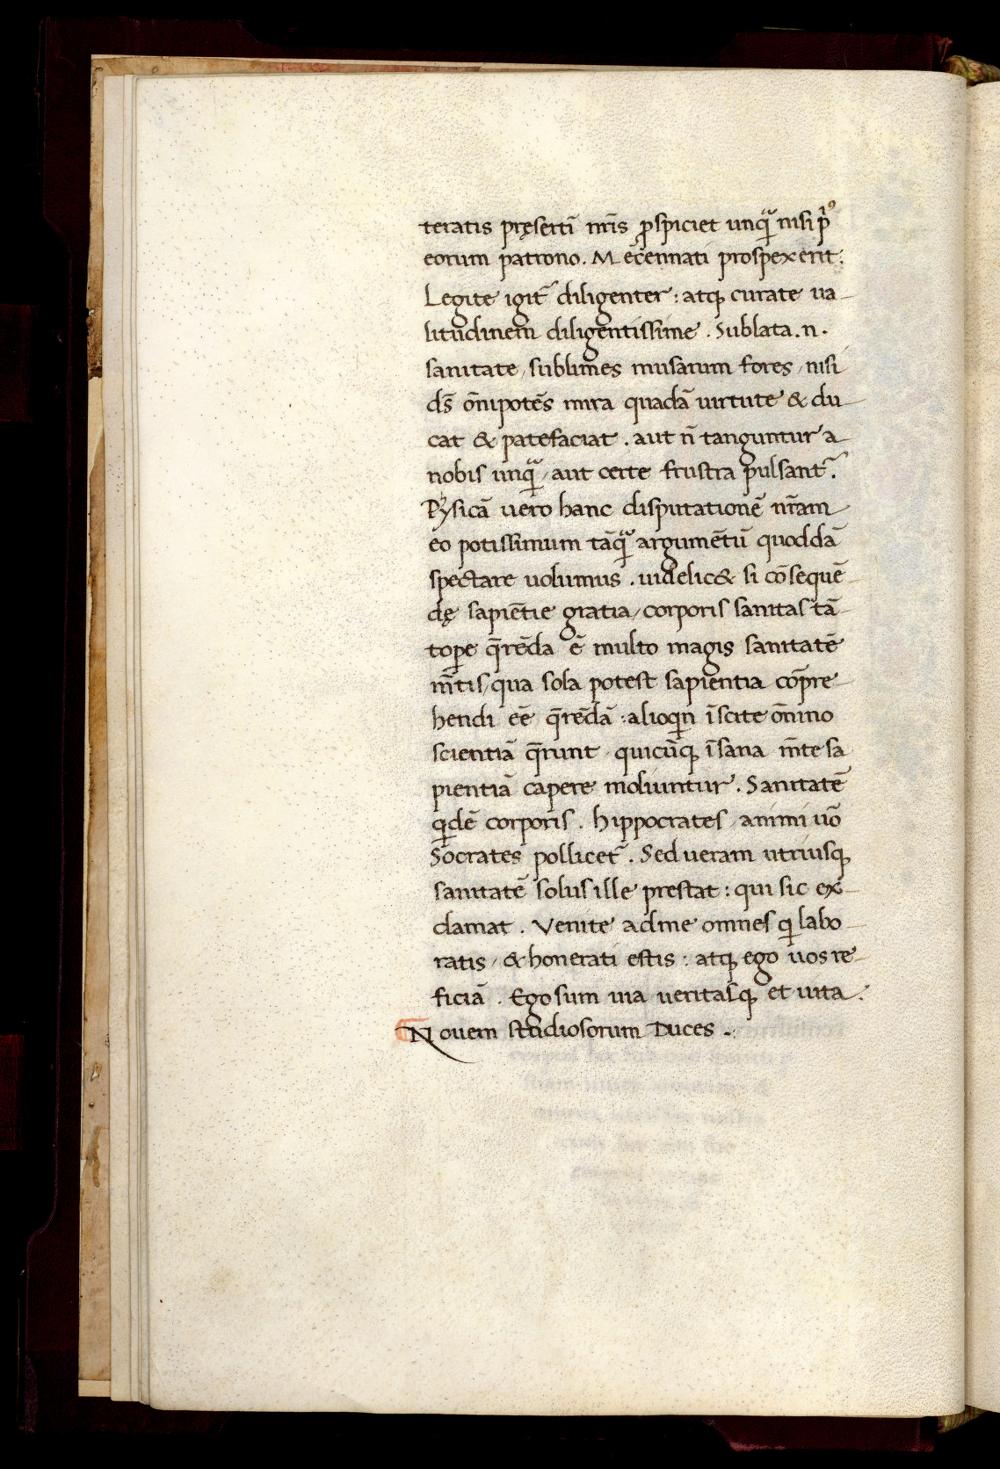 teratis pręsertĩ nr̃is ꝓspiciet unq̃ nisi p̃ꝰ
eorum patrono. Mecennati prospexerit:
Legite igit᷑ diligenter: atqꝫ curate ua-
litudinem diligentissime. Sublata.n.
sanitate, sublimes musarum fores, nisi
ds̃ om̃ipotẽs mira quadã uirtute & du-
cat & patefaciat. aut ñ tanguntur a
nobis unq̃, aut certe frustra pulsant᷑.
Pysicã uero hanc disputationẽ nr̃am
eo potissimum tãq̃ argumẽtũ quoddã
spectare uolumus. uidelic& si cõsequẽ-
dę sapiẽtie gratia, corporis sanitas tã-
tope q̃rẽda ẽ multo magis sanitatẽ
m̃tis, qua sola potest sapientia cõpre-
hendi eẽ q̃rẽdã: alioqn ĩscite om̃ino
scientiã q̃runt quicũqꝫ ĩsana m̃te sa
pientiã capere moliuntur. Sanitatẽ
qdẽ corporis. hippocrates, animi uõ
Socrates pollicet᷑. Sed ueram utriusqꝫ
sanitatẽ solus ille prestat: qui sic ex-
clamat. Venite ad me omnes q labo-
ratis, & honerati estis: atqꝫ ego uos re-
ficiã. Ego sum uia ueritasqꝫ et uita.
Nouem studiosorum Duces.